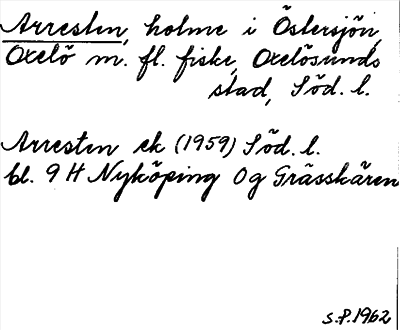 Arresten, holme i Östersjön,
Oxelö m. fl. fiske, Oxelösunds
stad, Söd. l.
Arresten ek (1959) Söd. l.
bl. 9 H Nyköping 0 g Grässkären
S.P. 1962